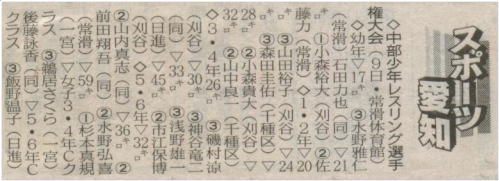 スポーツ
愛知
◇中部少年レスリング選手
権大会（9日・常滑体育館）
◇幼年▽17㌔ ③水野雅仁
（常滑）石田力也（同）▽21
㌔ ①小森裕大（刈谷）②佐
藤力（常滑）◇1・2年▽20
㌔ ③山田裕子（刈谷）▽24
㌔ ③森田圭佑（千種区）▽
28㌔ ②小森貴大（刈谷）▽
32㌔ ②山中良一（千種区）
◇3・4年26㌔ ③磯村涼
（刈谷）▽30㌔ ③神谷竜二
（同）▽33㌔ ③浅野雄一
（日進）▽45㌔ ②市江保博
（刈谷）◇5・6年▽32㌔
②山内真志（同）▽36㌔ ②
前田翔吾（同）②水野弘喜
（常滑）▽59㌔ ①杉本真規
（一宮）▽女子3・4年Cク
ラス ③鵜居さくら（一宮）
後藤詠香（同）▽5・6年C
クラス ③飯野温子（日進）